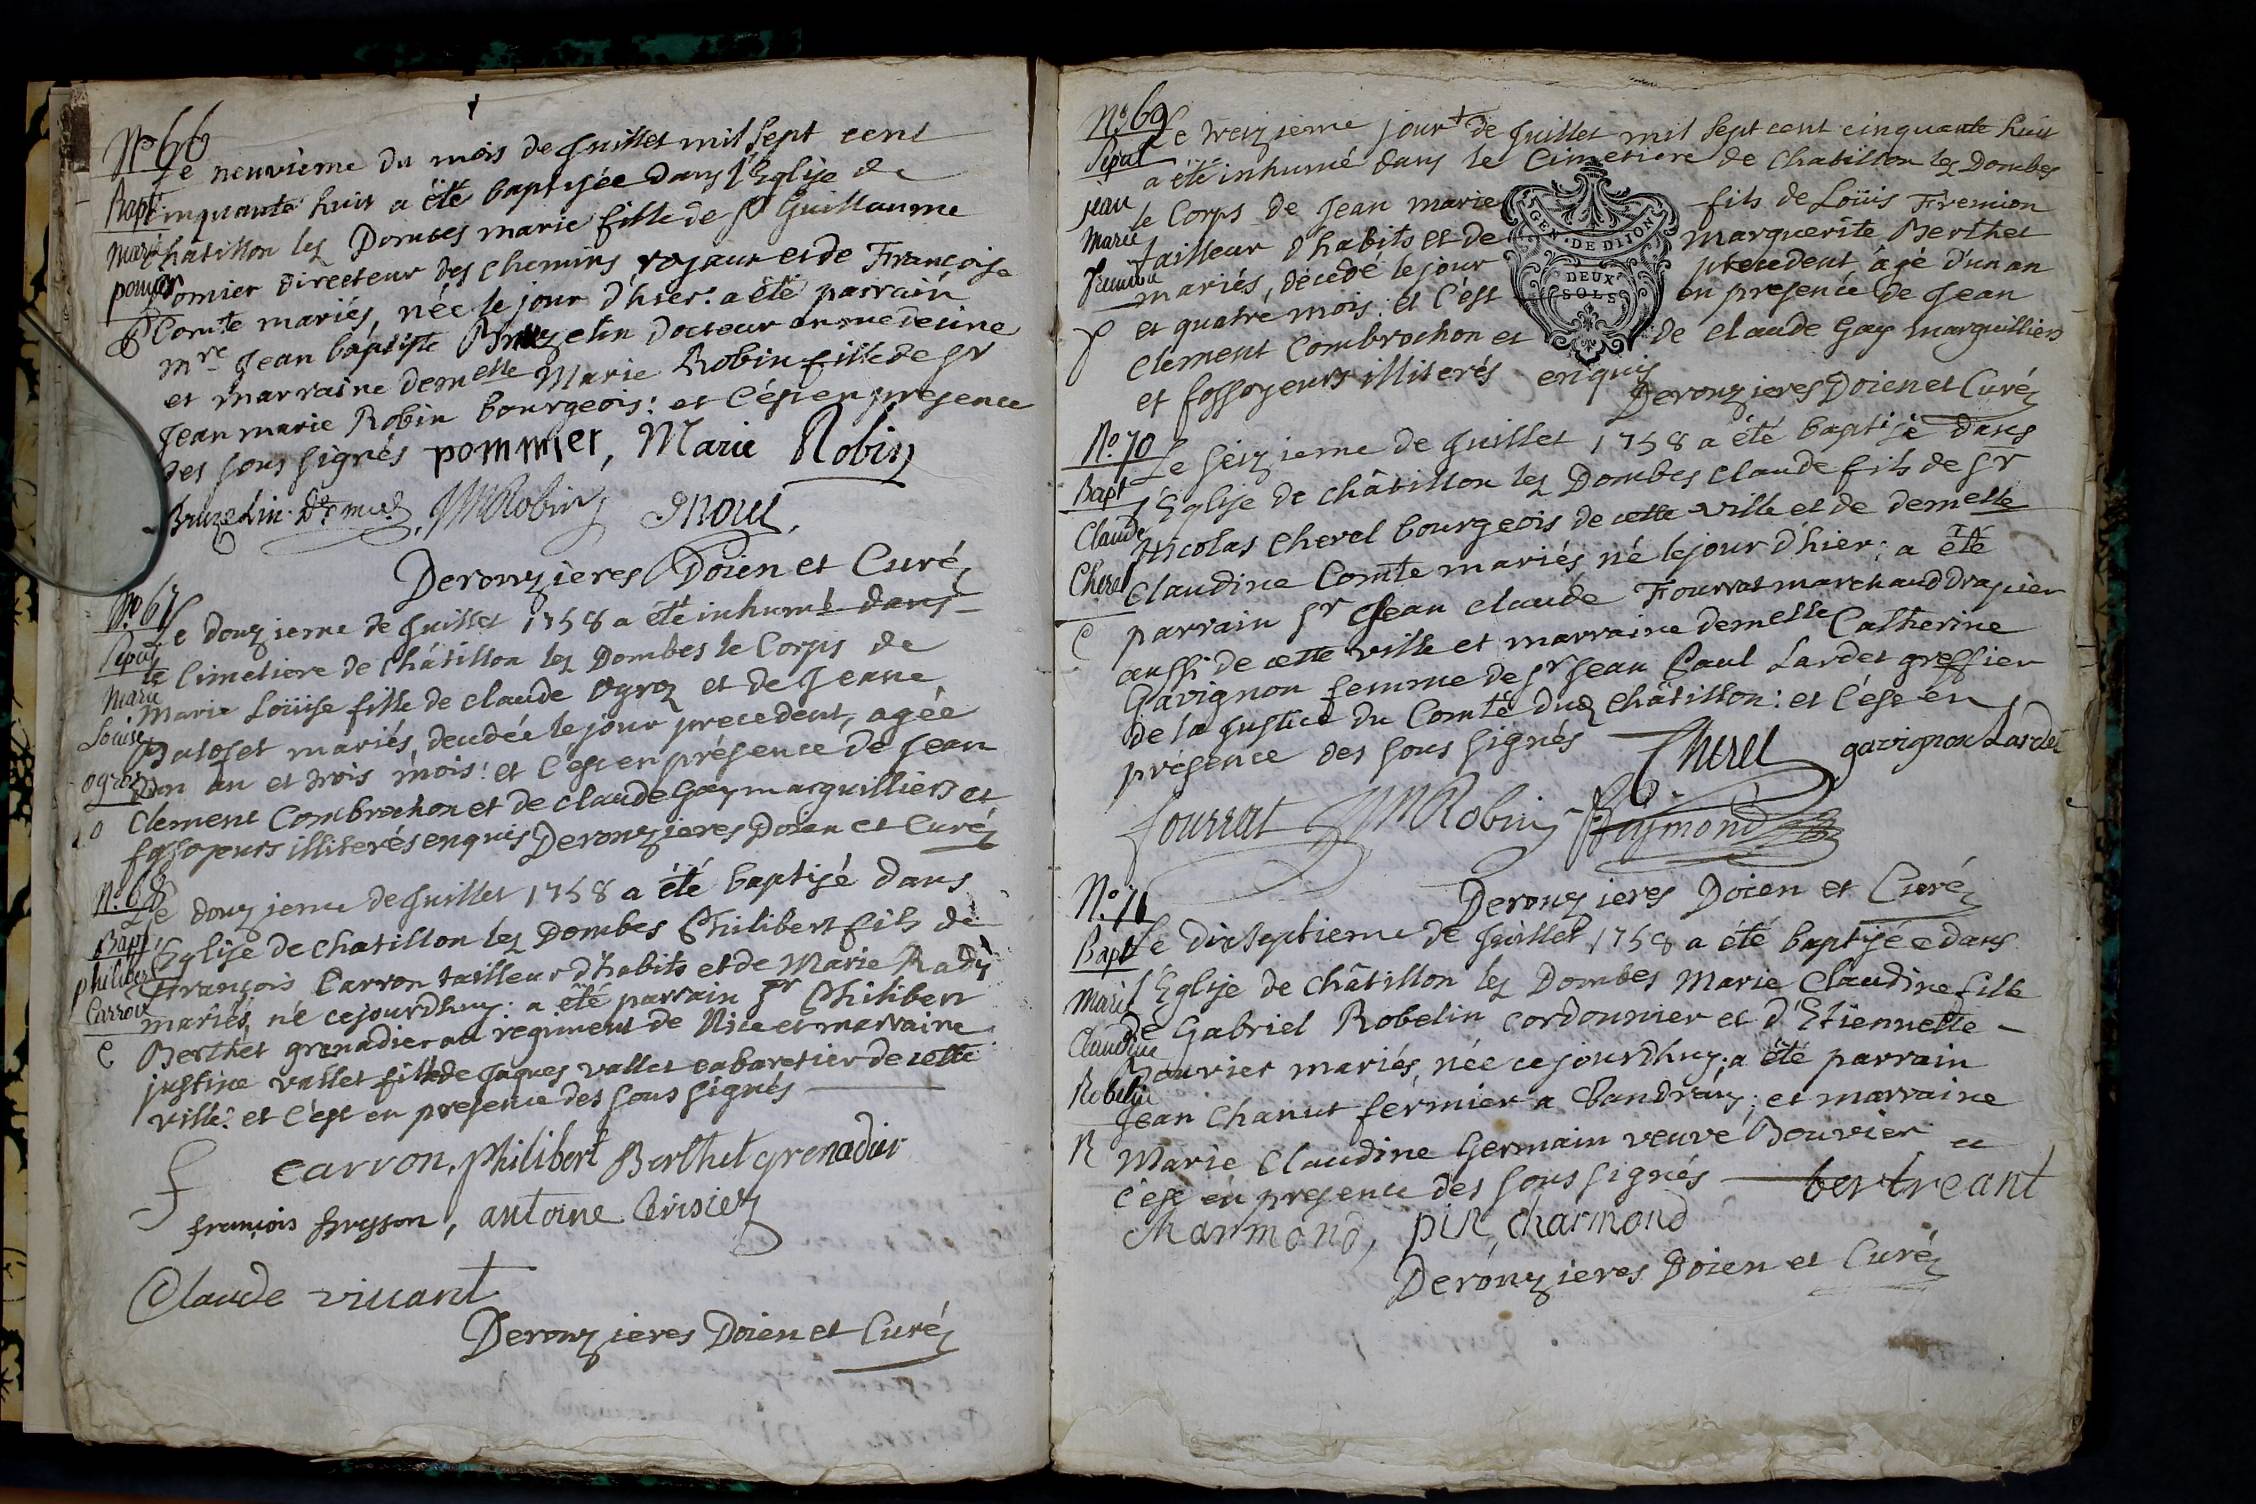 N° 66
Le neuvième du mois de Juillet mil sept cent
Bapt
cinquante huit a été baptisée dans l'Eglise de
marie
châtillon lez Dombes marie fille de sr Guillaume
pomier
Pomier directeur des chemins royaux et de Françoise
Comte mariés, née le jour d'hier: a été parrain
mre Jean baptiste Bruzelin docteur en medecine
et marraine demelle Marie Robin fille de sr
Jean marie Robin bourgeois: et c'est en presence
des sous signés pommier, Marie Robin
Bruzelin. Dr med, JM Robin
Derouzieres Doien et Curé
N° 67
Le douzieme de Juillet 1758 a été inhumé dans
Sepul
le Cimetiere de châtillon lez Dombes le Corps de
marie
Marie Loüise fille de claude Ogroz et de Jeane
Loüise
mariés, decedée le jour precedent, agée
ogroz
d'un an et trois mois: et c'est en présence de Jean
Clement Combrochon et de claude Gay marguilliers et
fossoyeurs illiterés enquis Derouzieres Doien et Curé
N° 68
Le douzieme de Juillet 1758 a été baptisé dans
Bapt
l'Eglise de chatillon lez Dombes Philibert fils de
philibert
François Carron tailleur d'habits et de Marie Rady
Carron
mariés, né cejourdhuy: a été parrain sr Philibert
Berthet grenadier au regiment de Nice et marraine
justine vallet fille de Jaques vallet cabaretier de cette
ville: et c'est en presence des sous signés
f carron, philibert Berthet grenadier
françois frysson, antoine Crisier
Claude vivant
Derouzieres Doien et Curé
N° 69
Le treizieme jour de Juillet mil sept cent cinquante huit
Sepul
a été inhumé dans le Cimetiere de chatillon lez Dombes
jean
le Corps de Jean marie fils de Loüis Fremion
marie
tailleur d'habits et de marguerite Berthet
fremion
mariés, décedé le jour precedent âgé d'un an
et quatre mois: et c'est en presence de Jean
Clement Combrochon et de claude Gay marguilliers
et fossoyeurs illiterés enquis
Derouzieres Doien et Curé
GEN. DE DIJON
DEUX
SOLS
N° 70
Le seizieme de Juillet 1758 a été baptisé dans
Bapt
l'Eglise de châtillon lez Dombes claude fils de sr
Claude
Nicolas Cherel bourgeois de cette ville et de demelle
Cherel
Claudine Comte mariés né le jour d'hier: a été
C
parrain sr Jean claude Fourrat marchand drapier
aussi de cette ville et marraine demelle Catherine
Gavignon femme de sr Jean Paul Lardet greffier
de la Justice du Comté dud châtillon: et c'est en
présence des sous signés Cherel gavignon Lardet
fourrat JM Robin Raymond
Derouzieres Doien et Curé
N° 71
Le dixseptieme de Juillet 1758 a été baptisée dans
Bapt
l'Eglise de châtillon lez Dombes Marie Claudine fille
Marie
de Gabriel Robelin cordonnier et d'Etiennette
Claudine
Bouvier mariés, née ce jourdhuy: a été parrain
Robelin
Jean Chanut fermier a Vandrans; et marraine
R
Marie Claudine Germain veuve Bouvier et
c'est en presence des sous signés bertreant
Charmond, charmond
Derouzieres Doien et Curé